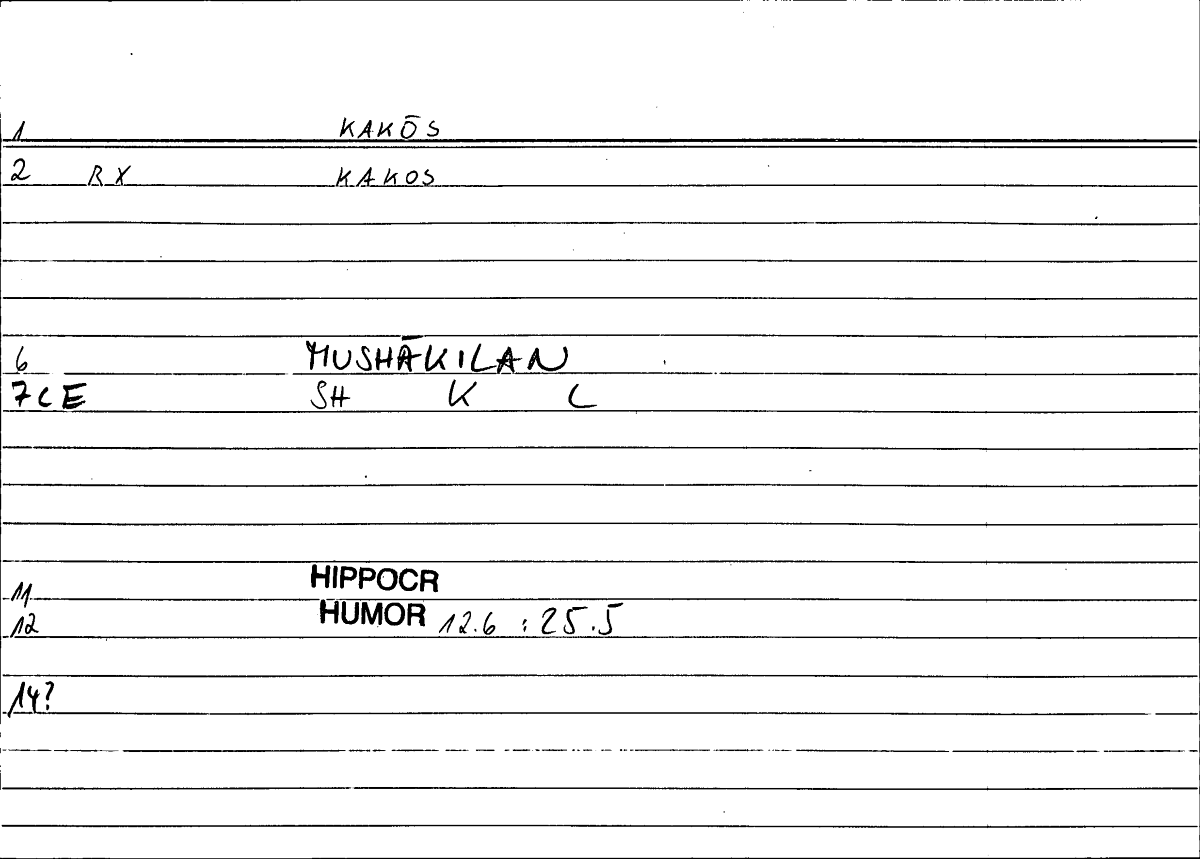 1 KAKŌS
2 RX KAKOS
6 MUSHĀKILAN
7CE SH K L
11 HIPPOCR
12 HUMOR 12.6 : 25.5
14?